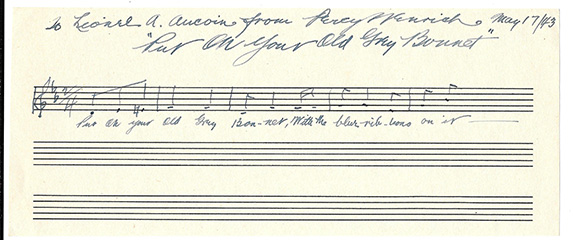 To Lionel A. Aucoin from Percy Wenrich May 17/43
"Put On Your Old Grey Bonnet"
Put On your Old Grey Bon-net, With the blue rib-bons on it